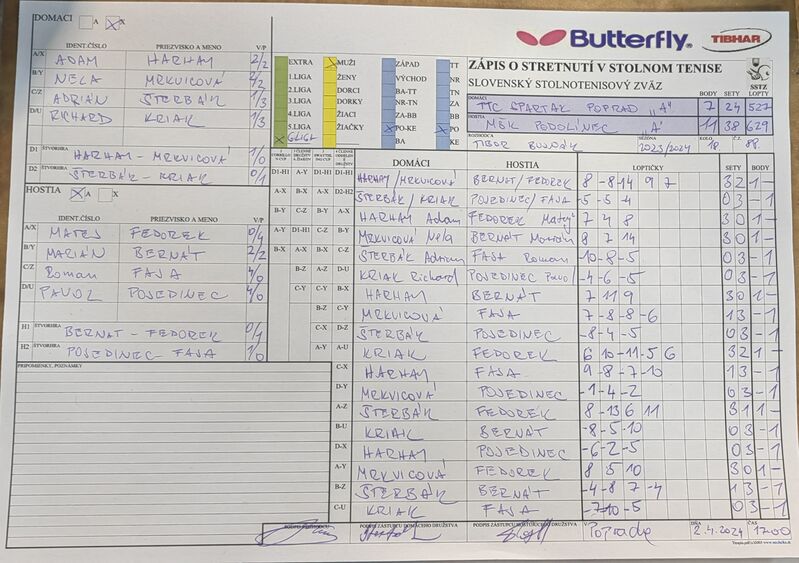 DOMÁCI A X
Butterfly TIBHAR
IDENT.ČÍSLO PRIEZVISKO A MENO V/P
A/X ADAM HARHAY 2/2
B/Y NELA MRKVICOVÁ 2/2
C/Z ADRIÁN ŠTERBÁK 1/3
D/U RICHARD KRIAK 1/3
D1 ŠTVORHRA HARHAY - MRKVICOVÁ 1/0
D2 ŠTVORHRA ŠTERBÁK - KRIAK 0/1
HOSTIA X A X
IDENT.ČÍSLO PRIEZVISKO A MENO V/P
A/X MATEJ FEDOREK 0/4
B/Y MARIÁN BERNÁT 2/2
C/Z Roman FAJA 4/0
D/U PAVOL POJEDINEC 4/0
H1 ŠTVORHRA BERNÁT - FEDOREK 0/1
H2 ŠTVORHRA POJEDINEC - FAJA 1/0
PRIPOMIENKY, POZNÁMKY
EXTRA MUŽI ZÁPAD TT
1.LIGA ŽENY VÝCHOD NR
2.LIGA DORCI BA-TT TN
3.LIGA DORKY NR-TN ZA
4.LIGA ŽIACI ZA-BB BB
5.LIGA ŽIAČKY PO-KE PO
6.LIGA BA KE
ZÁPIS O STRETNUTÍ V STOLNOM TENISE
SLOVENSKÝ STOLNOTENISOVÝ ZVÄZ
SSTZ
BODY SETY LOPTY
DOMÁCI TTC SPARTAK POPRAD "A" 7 24 527
HOSTIA MŠK PODOLÍNEC "A" 11 38 629
ROZHODCA SEZÓNA KOLO Č.Z.
TIBOR 2023/2024 18 88.
DOMÁCI HOSTIA LOPTIČKY SETY BODY
D1-H1 A-Y D1-H1 D1-H1 HARHAY/MRKVICOVÁ BERNÁT/FEDOREK 8 -8 -14 9 7 3 2 1 -
A-X B-X A-X D2-H2 ŠTERBÁK/KRIAK POJEDINEC/FAJA -5 -5 -4 0 3 - 1
B-Y C-Z B-Y A-X HARHAY Adam FEDOREK Matej 7 4 8 3 0 1 -
A-Y D1-H1 C-Z B-Y MRKVICOVÁ Nela BERNÁT Marián 8 7 14 3 0 1 -
B-X A-X B-X C-Z ŠTERBÁK Adrian FAJA Roman -10 -8 -5 0 3 - 1
B-Z A-Z D-U KRIAK Richard POJEDINEC Pavol -4 -6 -5 0 3 - 1
C-Y C-Y B-X HARHAY BERNÁT 7 11 9 3 0 1 -
B-Z C-Y MRKVICOVÁ FAJA 7 -8 -8 -6 1 3 - 1
C-X D-Z ŠTERBÁK POJEDINEC -8 -4 -5 0 3 - 1
A-Y A-U KRIAK FEDOREK 6 10 -11 -5 6 3 2 1 -
C-X HARHAY FAJA 9 -8 -7 -10 1 3 - 1
D-Y MRKVICOVÁ POJEDINEC -1 -4 -2 0 3 - 1
A-Z ŠTERBÁK FEDOREK 8 -13 6 11 3 1 1 -
B-U KRIAK BERNÁT -8 -5 -10 0 3 - 1
D-X HARHAY POJEDINEC -6 -2 -5 0 3 - 1
A-Y MRKVICOVÁ FEDOREK 8 5 10 3 0 1 -
B-Z ŠTERBÁK BERNÁT -4 -8 7 -4 1 3 - 1
C-U KRIAK FAJA -7 -10 -5 0 3 - 1
PODPIS ROZHODCU PODPIS ZÁSTUPCU DOMÁCEHO DRUŽSTVA PODPIS ZÁSTUPCU HOSŤUJÚCEHO DRUŽSTVA V Poprade DŇA 2.4.2024 ČAS 17:00